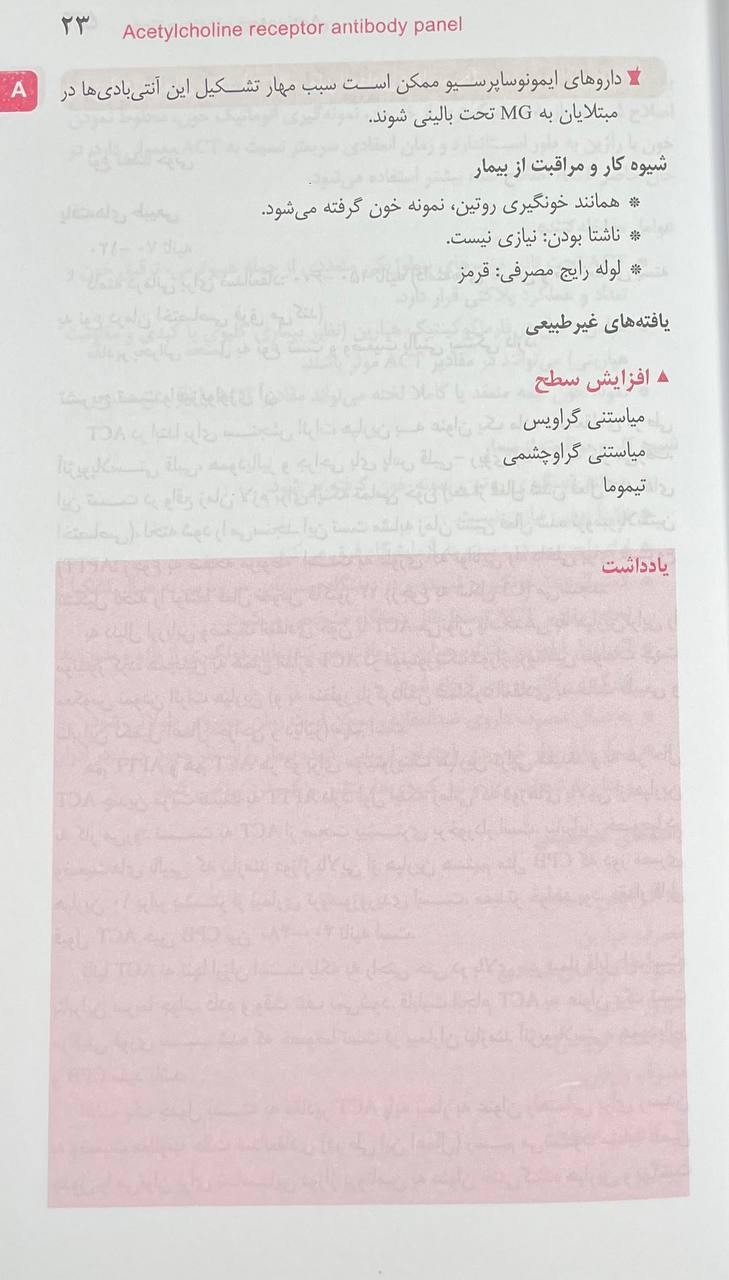 ۲۳ Acetylcholine receptor antibody panel
A
داروهای ایمونوساپرسیو ممکن است سبب مهار تشکیل این آنتی‌بادی‌ها در
مبتلایان به MG تحت بالینی شوند.
شیوه کار و مراقبت از بیمار
❋ همانند خونگیری روتین، نمونه خون گرفته می‌شود.
❋ ناشتا بودن: نیازی نیست.
❋ لوله رایج مصرفی: قرمز
یافته‌های غیرطبیعی
▲ افزایش سطح
میاستنی گراویس
میاستنی گراوچشمی
تیموما
یادداشت